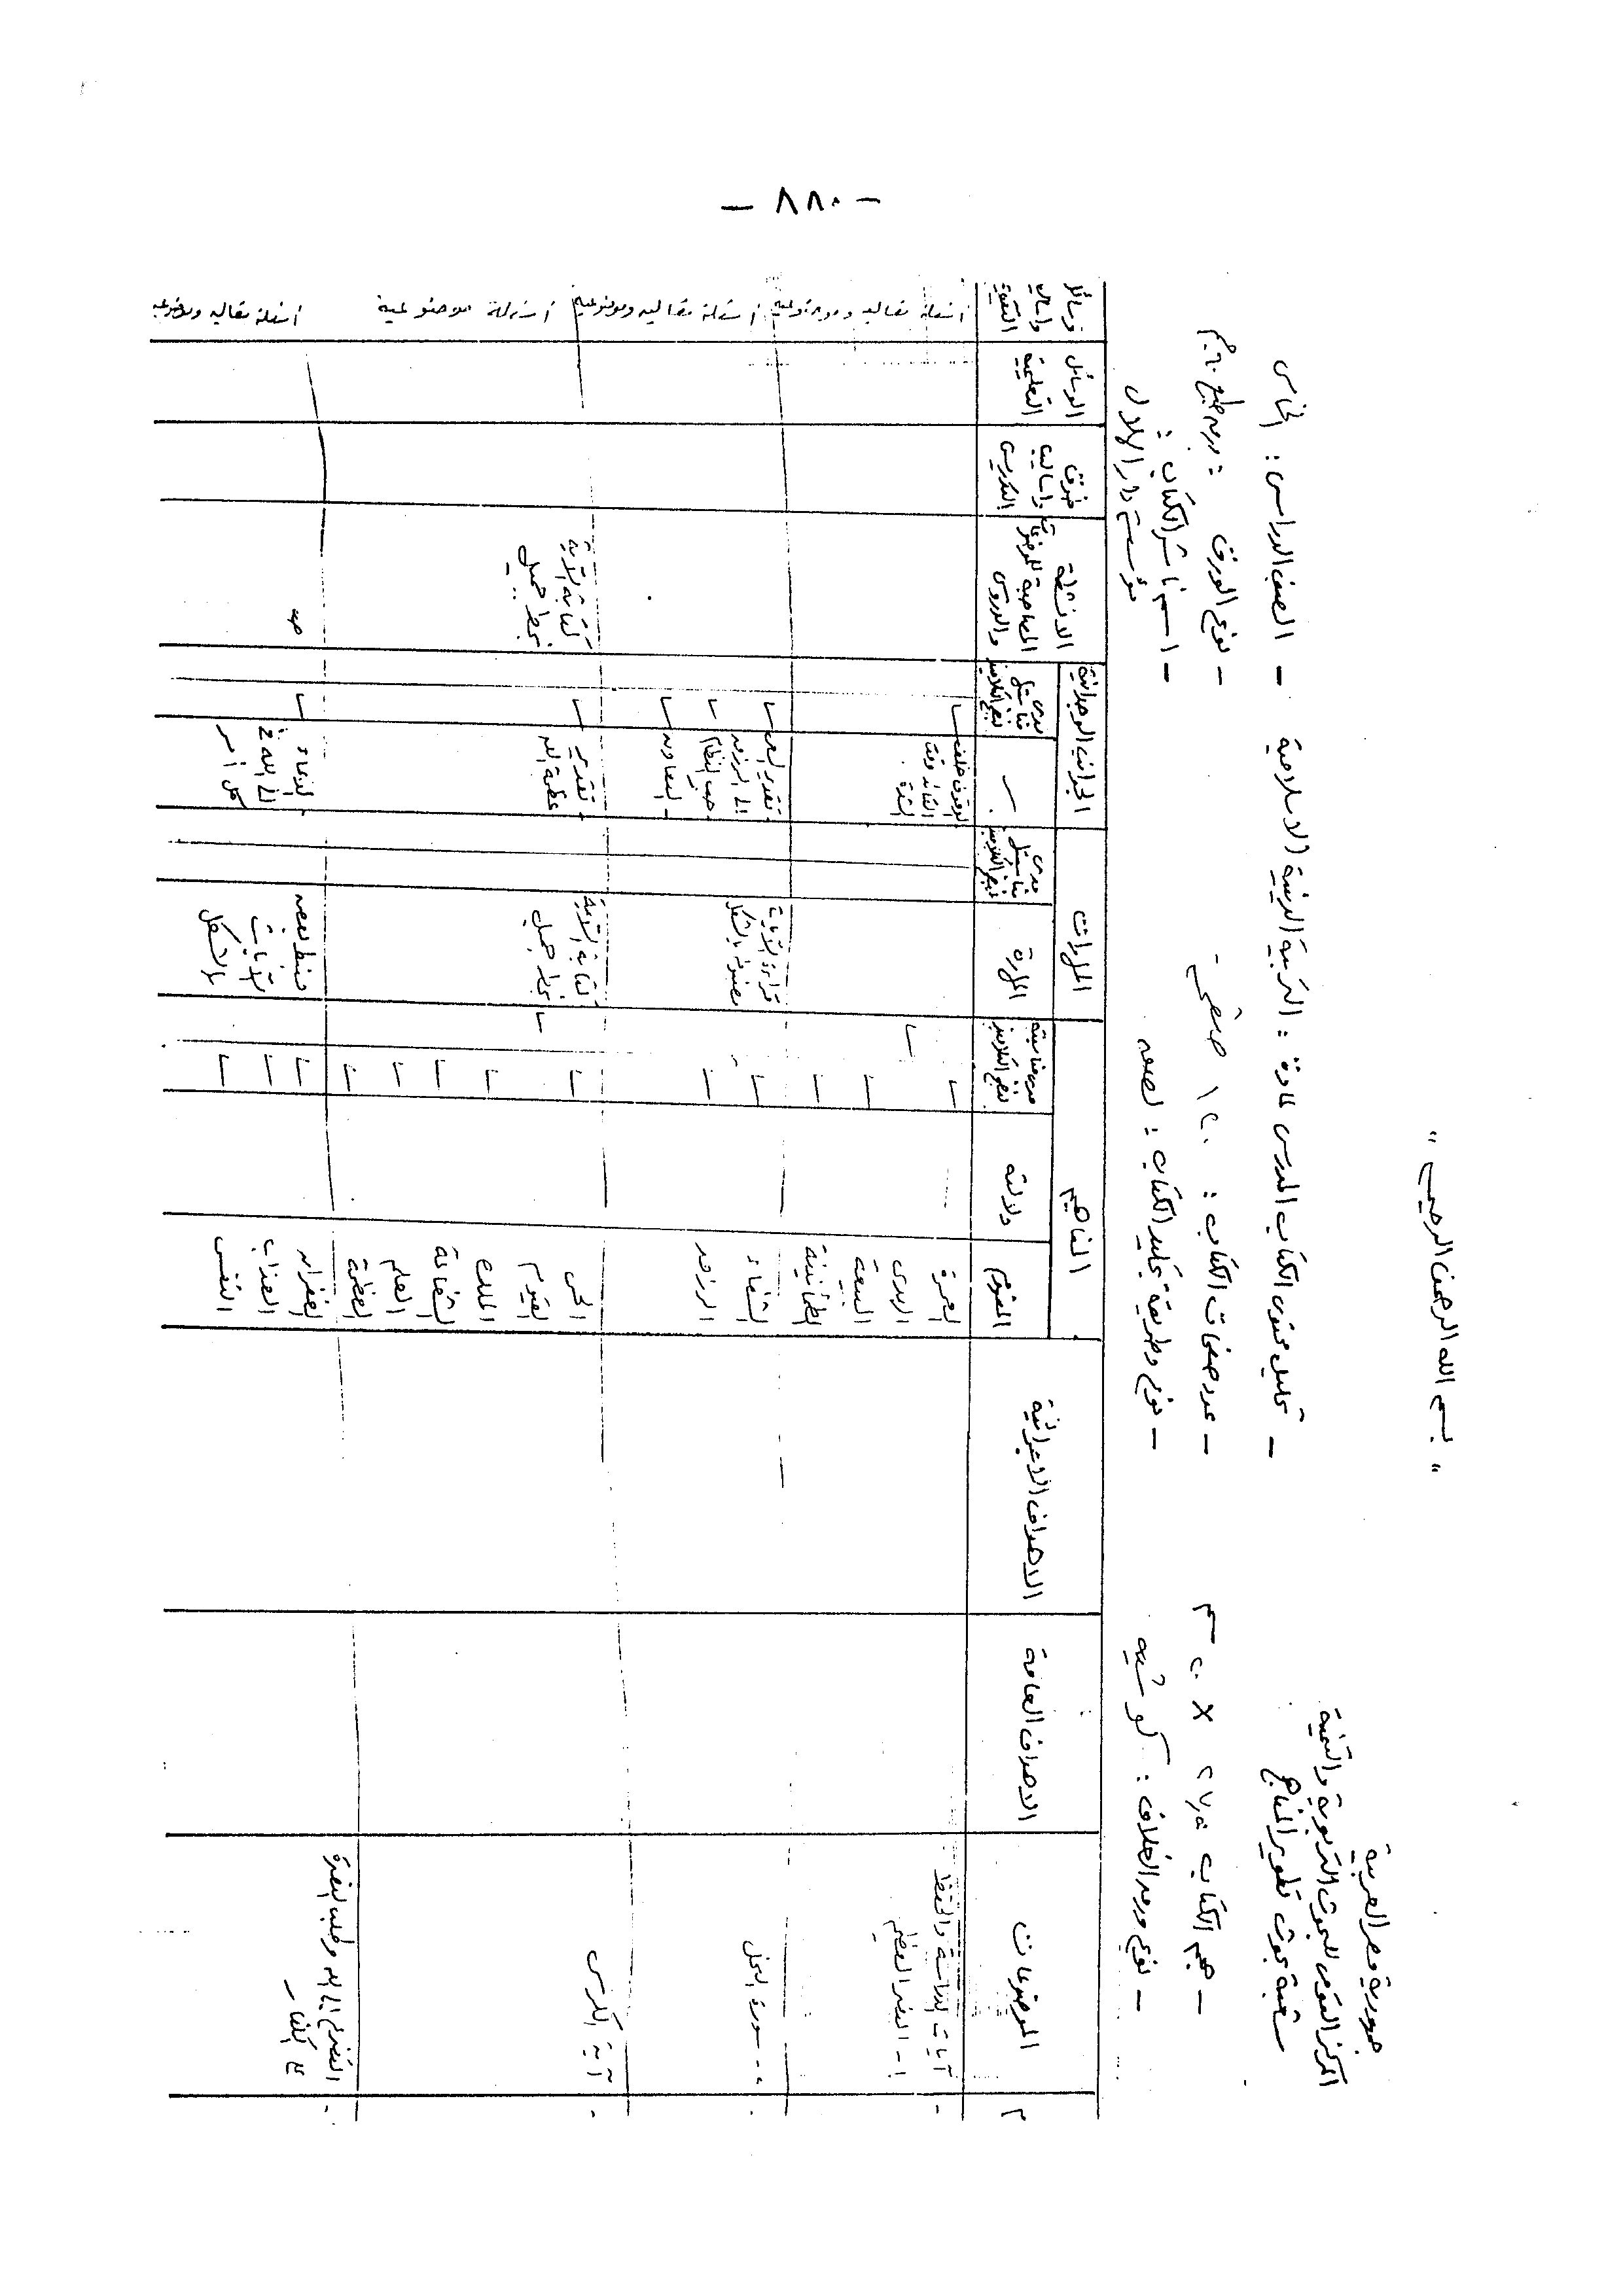 - ٨٨٠ -
" بسم الله الرحمن الرحيم "
جمهورية مصر العربية
المركز القومى للبحوث التربوية والتنمية
شعبة بحوث تطوير المناهج
- تحليل محتوى الكتاب المدرسى لمادة : التربية الدينية الاسلامية - الصف الدراسى : الخامس
- حجم الكتاب
- عدد صفحات الكتاب : ١٢٠ صفحة
- نوع الورق :
- نوع ورق الغلاف : كوشيه
- نوع وطريقة تجليد الكتاب : لصق
- اسم ناشر الكتاب :
مؤسسة دار الهلال
م
الموضوعات
الاهداف العامة
الاهداف الاجرائية
المفاهيم
المفهوم
دلالته
مدى مناسبته لنضج التلاميذ
المهارات
المهارة
مدى مناسبتها لنضج التلاميذ
الجوانب الوجدانية
الانشطة المصاحبة للموضوعات والدروس
طرق واساليب التدريس
الوسائل التعليمية
وسائل واساليب التقويم
آيات الدراسة والحفظ
١ - النصر العظيم
الهدى
السكينة
الطمأنينة
الوقوف خلف القائد وقت الشدة
اسئلة مقالية وموضوعية
سورة النحل
الشفاء
قراءة الآيات مضبوطة بالشكل
حب النظام
- التعاون
اسئلة مقالية وموضوعية
آية الكرسى
الحى
القيوم
الملك
الشفاعة
العلم
العظمة
كتابة الآية بخط جميل
- تقدير عظمة الله
كتابة الآية بخط جميل
اسئلة موضوعية
التضرع الى الله وطلب النصرة
الغفران
العذاب
النفس
ضبط بعض الآيات بالشكل
الدعاء الى الله فى كل أمر
اسئلة مقالية وموضوعية